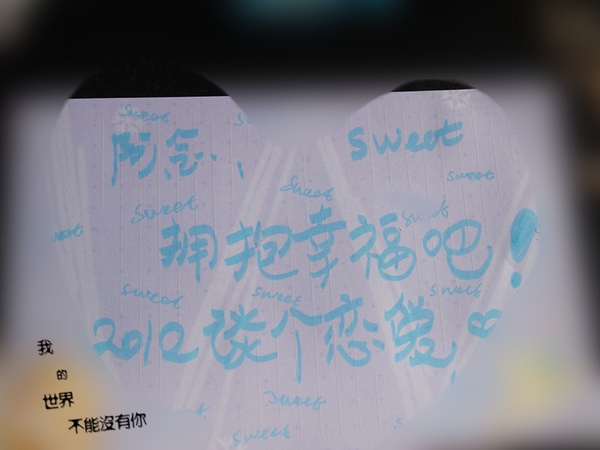 Sweet
念
Sweet
Sweet
Sweet
Sweet
拥抱幸福吧!
Sweet
Sweet
Sweet
2012谈个恋爱
Sweet
Sweet
我
的
世界
不能沒有你